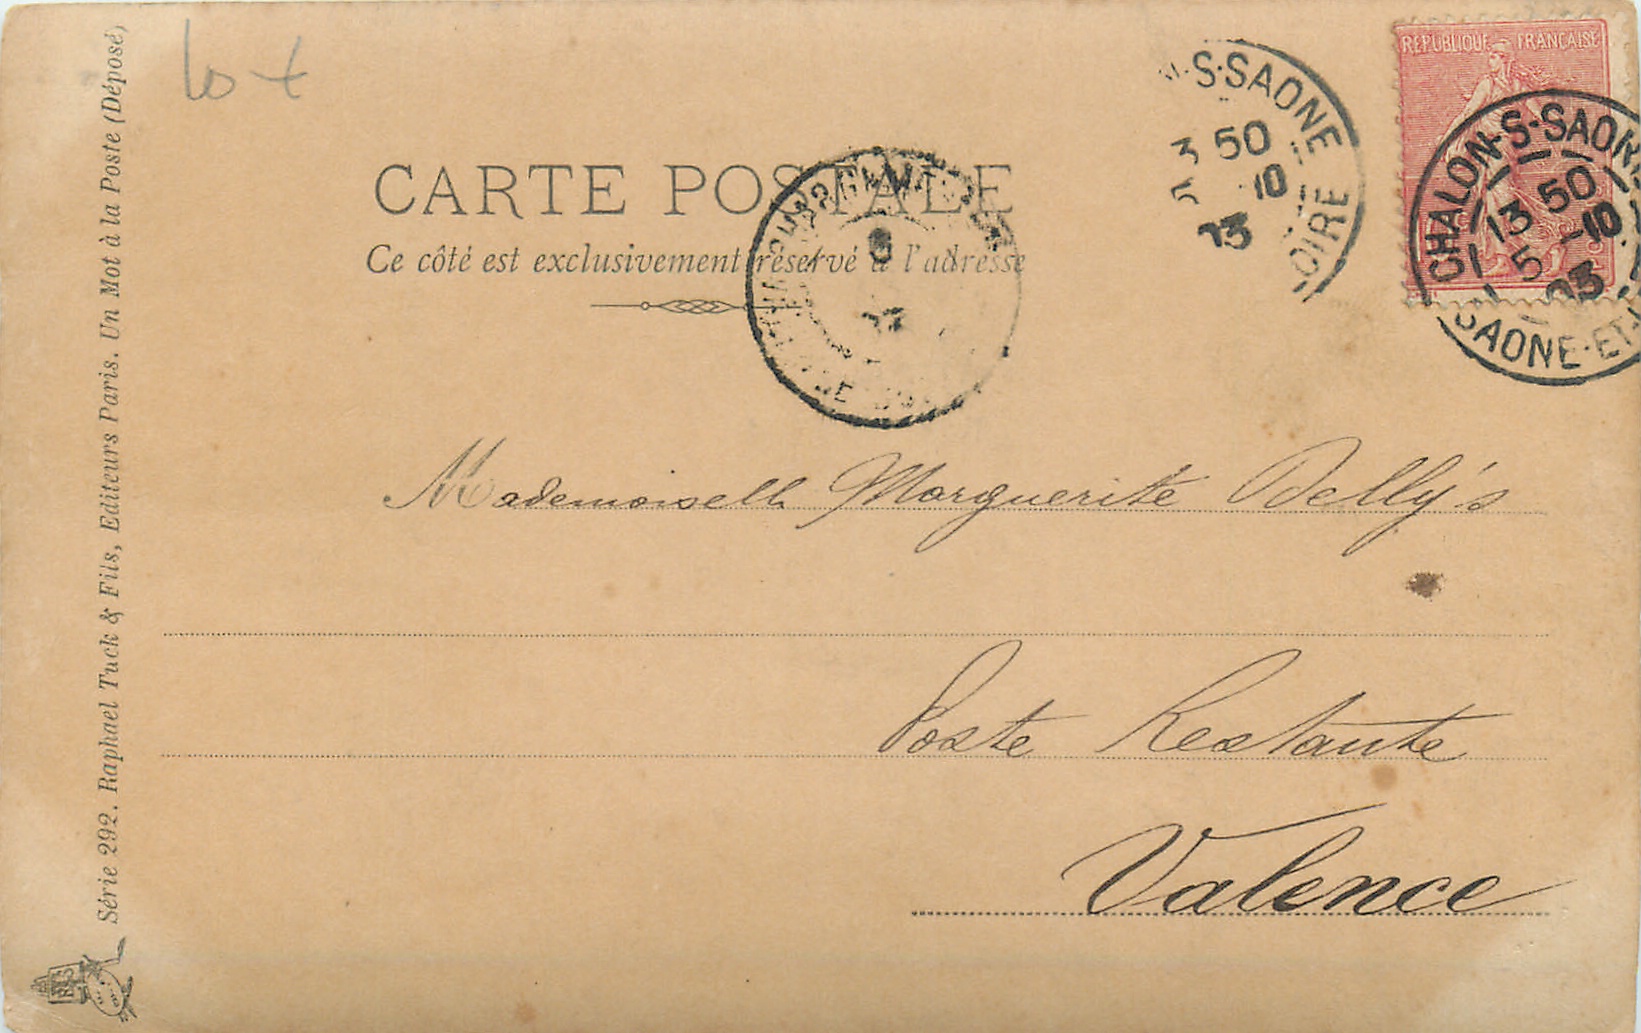 lot
RÉPUBLIQUE FRANÇAISE
S-SAONE
3 50
10
03
LOIRE
CHALON-S-SAONE
13 50
5 -10
03
SAONE-ET-L
CARTE POSTALE
Ce côté est exclusivement réservé à l'adresse
Mademoiselle Marguerite Delly's
Poste Restante
Valence
Série 292. Raphael Tuck & Fils, Editeurs Paris. Un Mot à la Poste (Déposé)